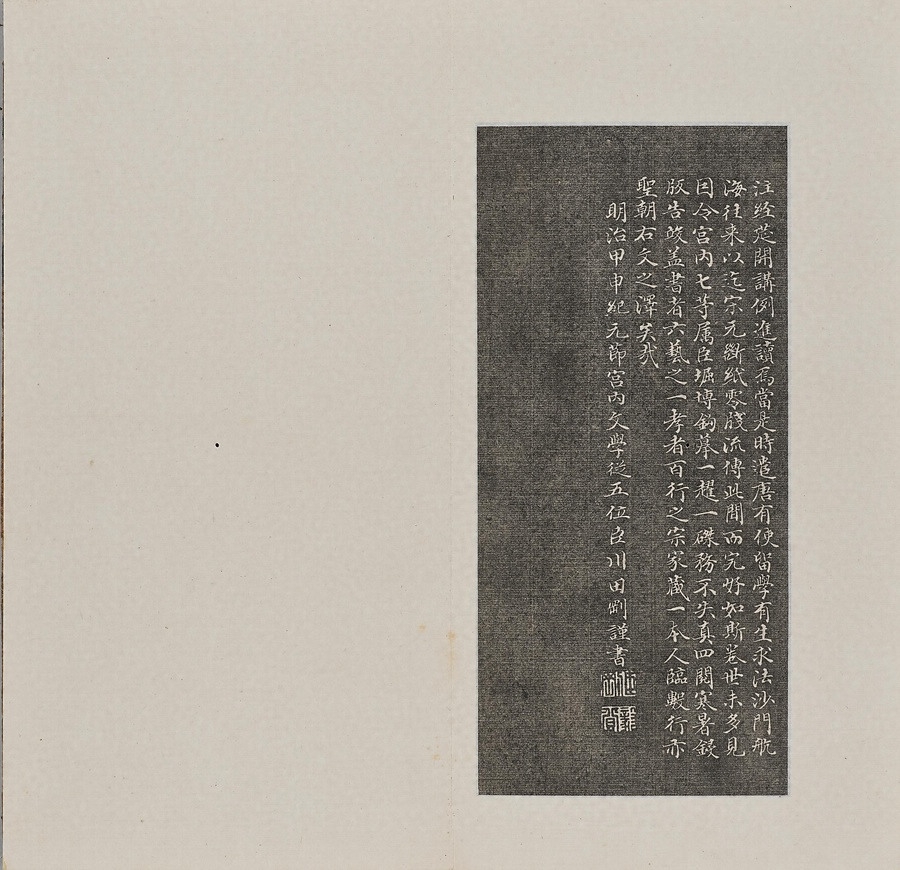 注經莚開講例進讀焉當是時遣唐有使留學有生求法沙門航
海往来以迄宋元斷紙零牋流傳此間而完好如斯卷世未多見
因令宮内七等属臣堀博鉤摹一趯一磔務不失真四閲寒暑録
版告竣盖書者六藝之一孝者百行之宗家藏一本人臨數行亦
聖朝右文之澤矣哉
明治甲申紀元節宮内文學從五位臣川田剛謹書